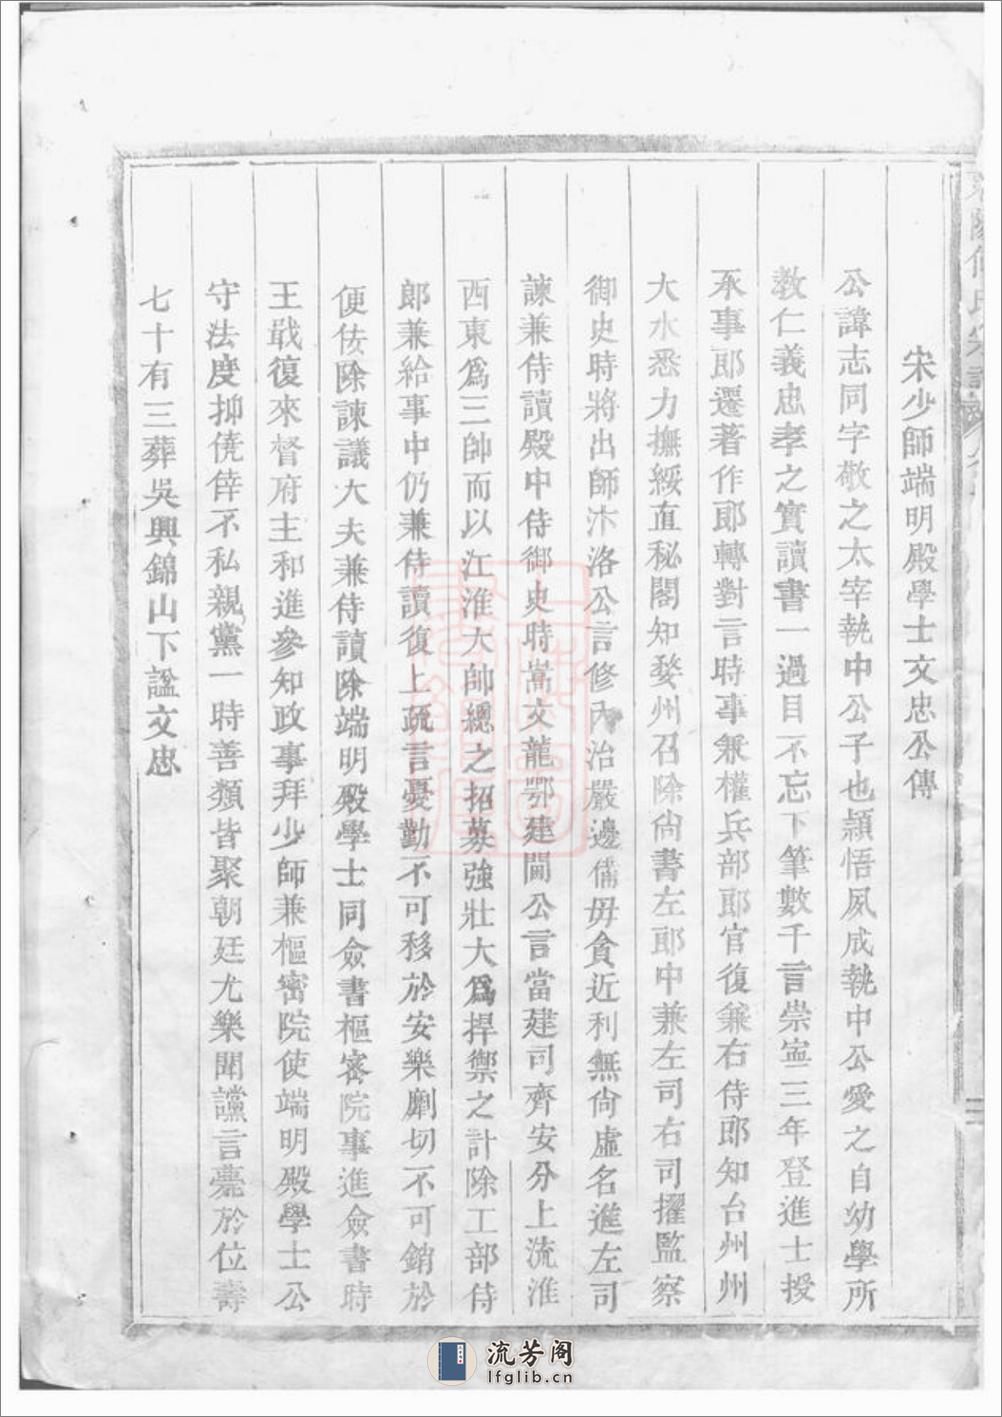 宋少師端明殿學士文忠公傳
公諱志同字敬之太宰執中公子也頴悟夙成執中公愛之自幼學所
教仁義忠孝之實讀書一過目不忘下筆數千言崇寍三年登進士授
承事郎遷著作郎轉對言時事兼權兵部郎官復兼右侍郎知台州州
大水悉力撫綏直秘閣知婺州召除尙書左郎中兼左司右司擢監察
御史時將出師汴洛公言修內治嚴邊備毋貪近利無尙虛名進左司
諫兼侍讀殿中侍御史時嵩之龍鄂建閫公言當建司齊安分上流淮
西東爲三帥而以江淮大帥總之招募強壯大爲捍禦之計除工部侍
郎兼給事中仍兼侍讀復上疏言憂勤不可移於安樂劘切不可銷於
便佞除諫議大夫兼侍讀除端明殿學士同僉書樞密院事進僉書時
王戢復來督府主和進參知政事拜少師兼樞密院使端明殿學士公
守法度抑僥倖不私親黨一時善類皆聚朝廷尤樂聞讜言薨於位壽
七十有三葬吳興錦山下諡文忠
氏宗譜
流芳阁
lfglib.cn